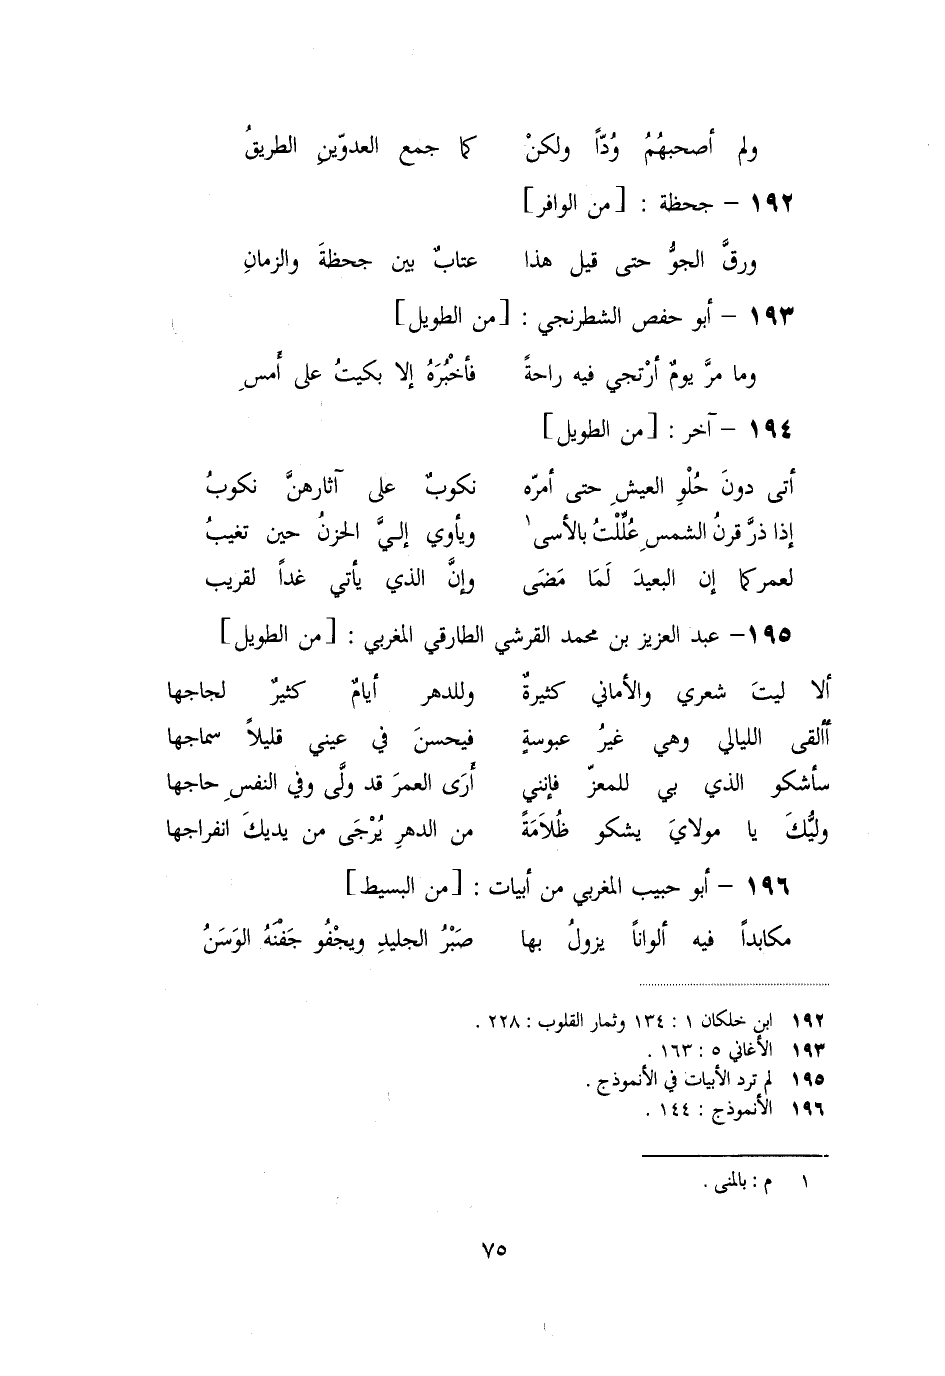 ولم أصحبهُمُ وُدّاً ولكنْ كما جمع العدوّينِ الطريقُ
١٩٢ – جحظة : [ من الوافر ]
ورقَّ الجوُّ حتى قيل هذا عتابٌ بين جحظةَ والزمانِ
١٩٣ – أبو حفص الشطرنجي : [ من الطويل ]
وما مرَّ يومٌ أرْتجي فيه راحةً فأخْبُرَهُ إلا بكيتُ على أَمسِ
١٩٤ – آخر : [ من الطويل ]
أتى دونَ حُلْوِ العيشِ حتى أمرّه نكوبٌ على آثارهنَّ نكوبُ
إذا ذرَّ قرنُ الشمسِ عُلِّلْتُ بالأسى١ ويأوي إليَّ الحزنُ حين تغيبُ
لعمركما إن البعيدَ لَمَا مَضَى وإنَّ الذي يأتي غداً لقريب
١٩٥ – عبد العزيز بن محمد القرشي الطارقي المغربي : [ من الطويل ]
ألا ليتَ شعري والأماني كثيرةٌ وللدهر أيامٌ كثيرٌ لجاجها
أألقى الليالي وهي غيرُ عبوسةٍ فيحسنَ في عيني قليلاً سماجها
سأشكو الذي بي للمعزّ فإنني أَرَى العمرَ قد ولَّى وفي النفسِ حاجها
وليُّكَ يا مولايَ يشكو ظُلاَمَةً من الدهرِ يُرْجَى من يديكَ انفراجها
١٩٦ – أبو حبيب المغربي من أبيات : [ من البسيط ]
مكابداً فيه ألواناً يزولُ بها صَبْرُ الجليدِ ويجْفُو جَفْنَهُ الوَسَنُ
١٩٢ ابن خلكان ١ : ١٣٤ وثمار القلوب : ٢٢٨ .
١٩٣ الأغاني ٥ : ١٦٣ .
١٩٥ لم ترد الأبيات في الأنموذج .
١٩٦ الأنموذج : ١٤٤ .
١ م : بالمنى .
٧٥